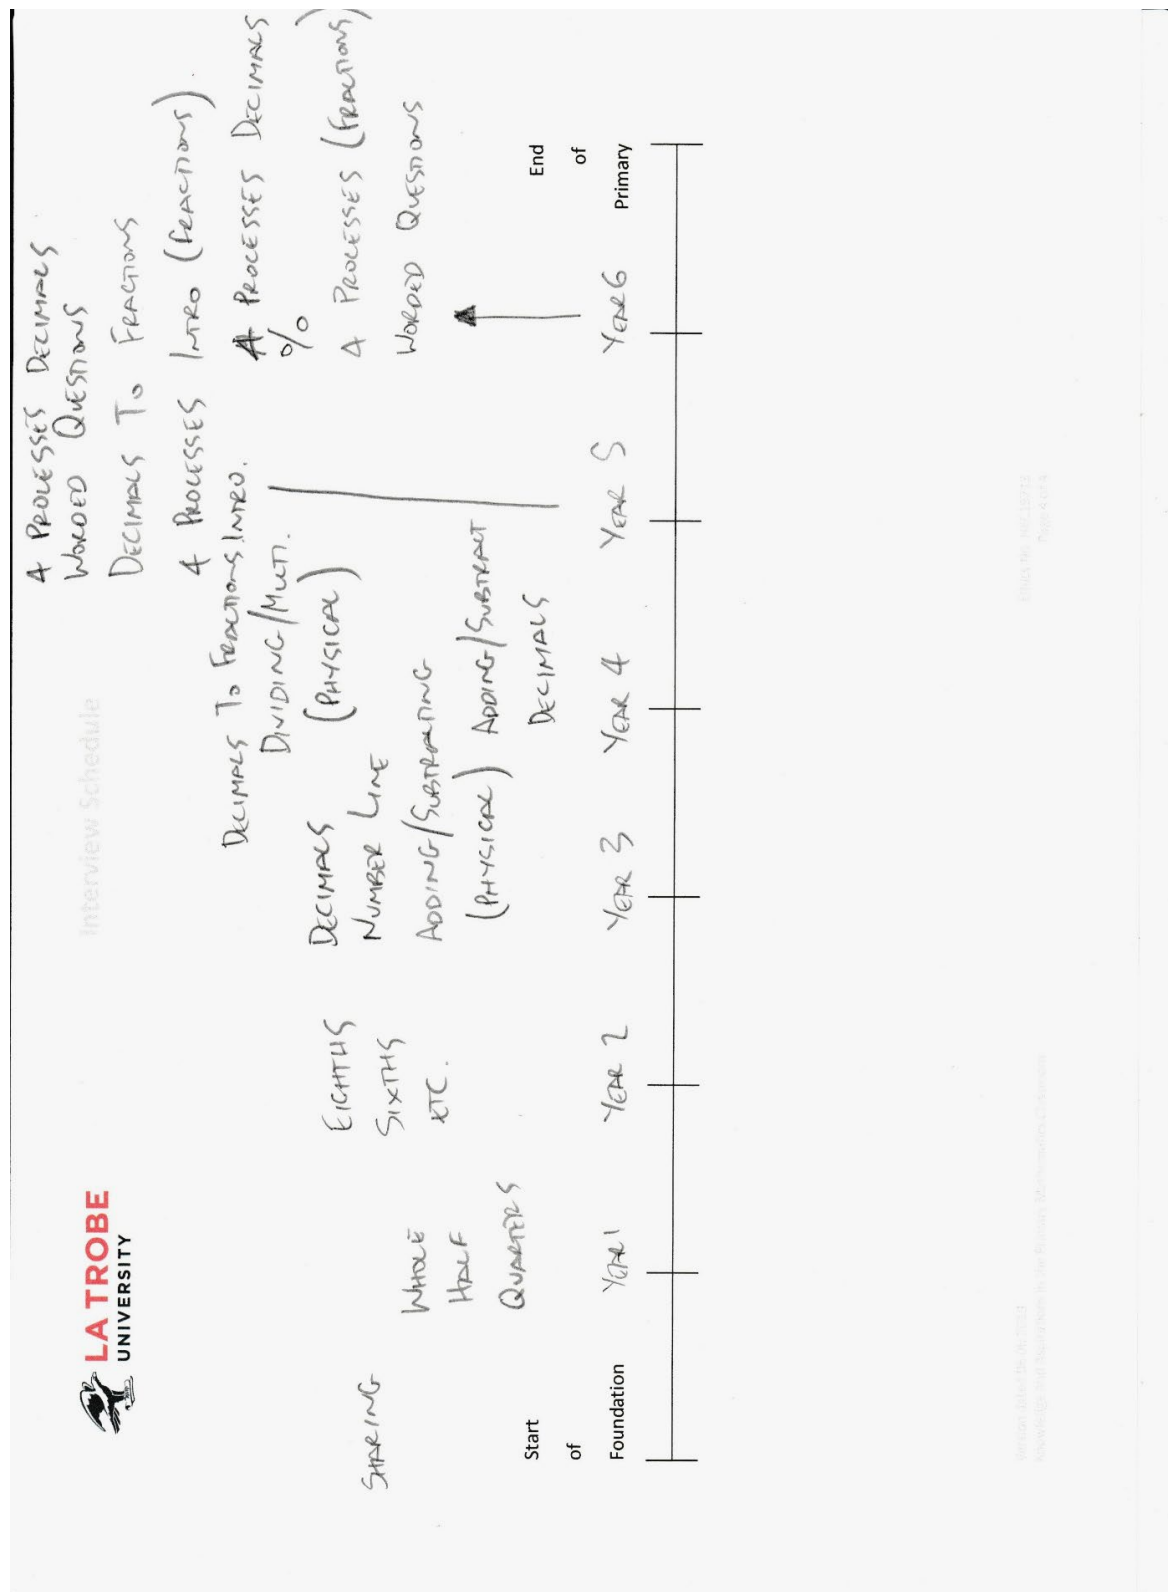 LA TROBE
UNIVERSITY
Interview Schedule
SHARING
WHOLE
HALF
QUARTERS
EIGHTHS
SIXTHS
ETC.
DECIMALS
NUMBER LINE
ADDING/SUBTRACTING
(PHYSICAL)
DECIMALS TO FRACTIONS INTRO.
DIVIDING/MULTI.
(PHYSICAL)
ADDING/SUBTRACT
DECIMALS
4 PROCESSES DECIMALS
WORDED QUESTIONS
DECIMALS TO FRACTIONS
4 PROCESSES INTRO (FRACTIONS).
4 PROCESSES DECIMALS
%
4 PROCESSES (FRACTIONS)
WORDED QUESTIONS
Start
of
Foundation
YEAR 1
YEAR 2
YEAR 3
YEAR 4
YEAR 5
YEAR 6
End
of
Primary